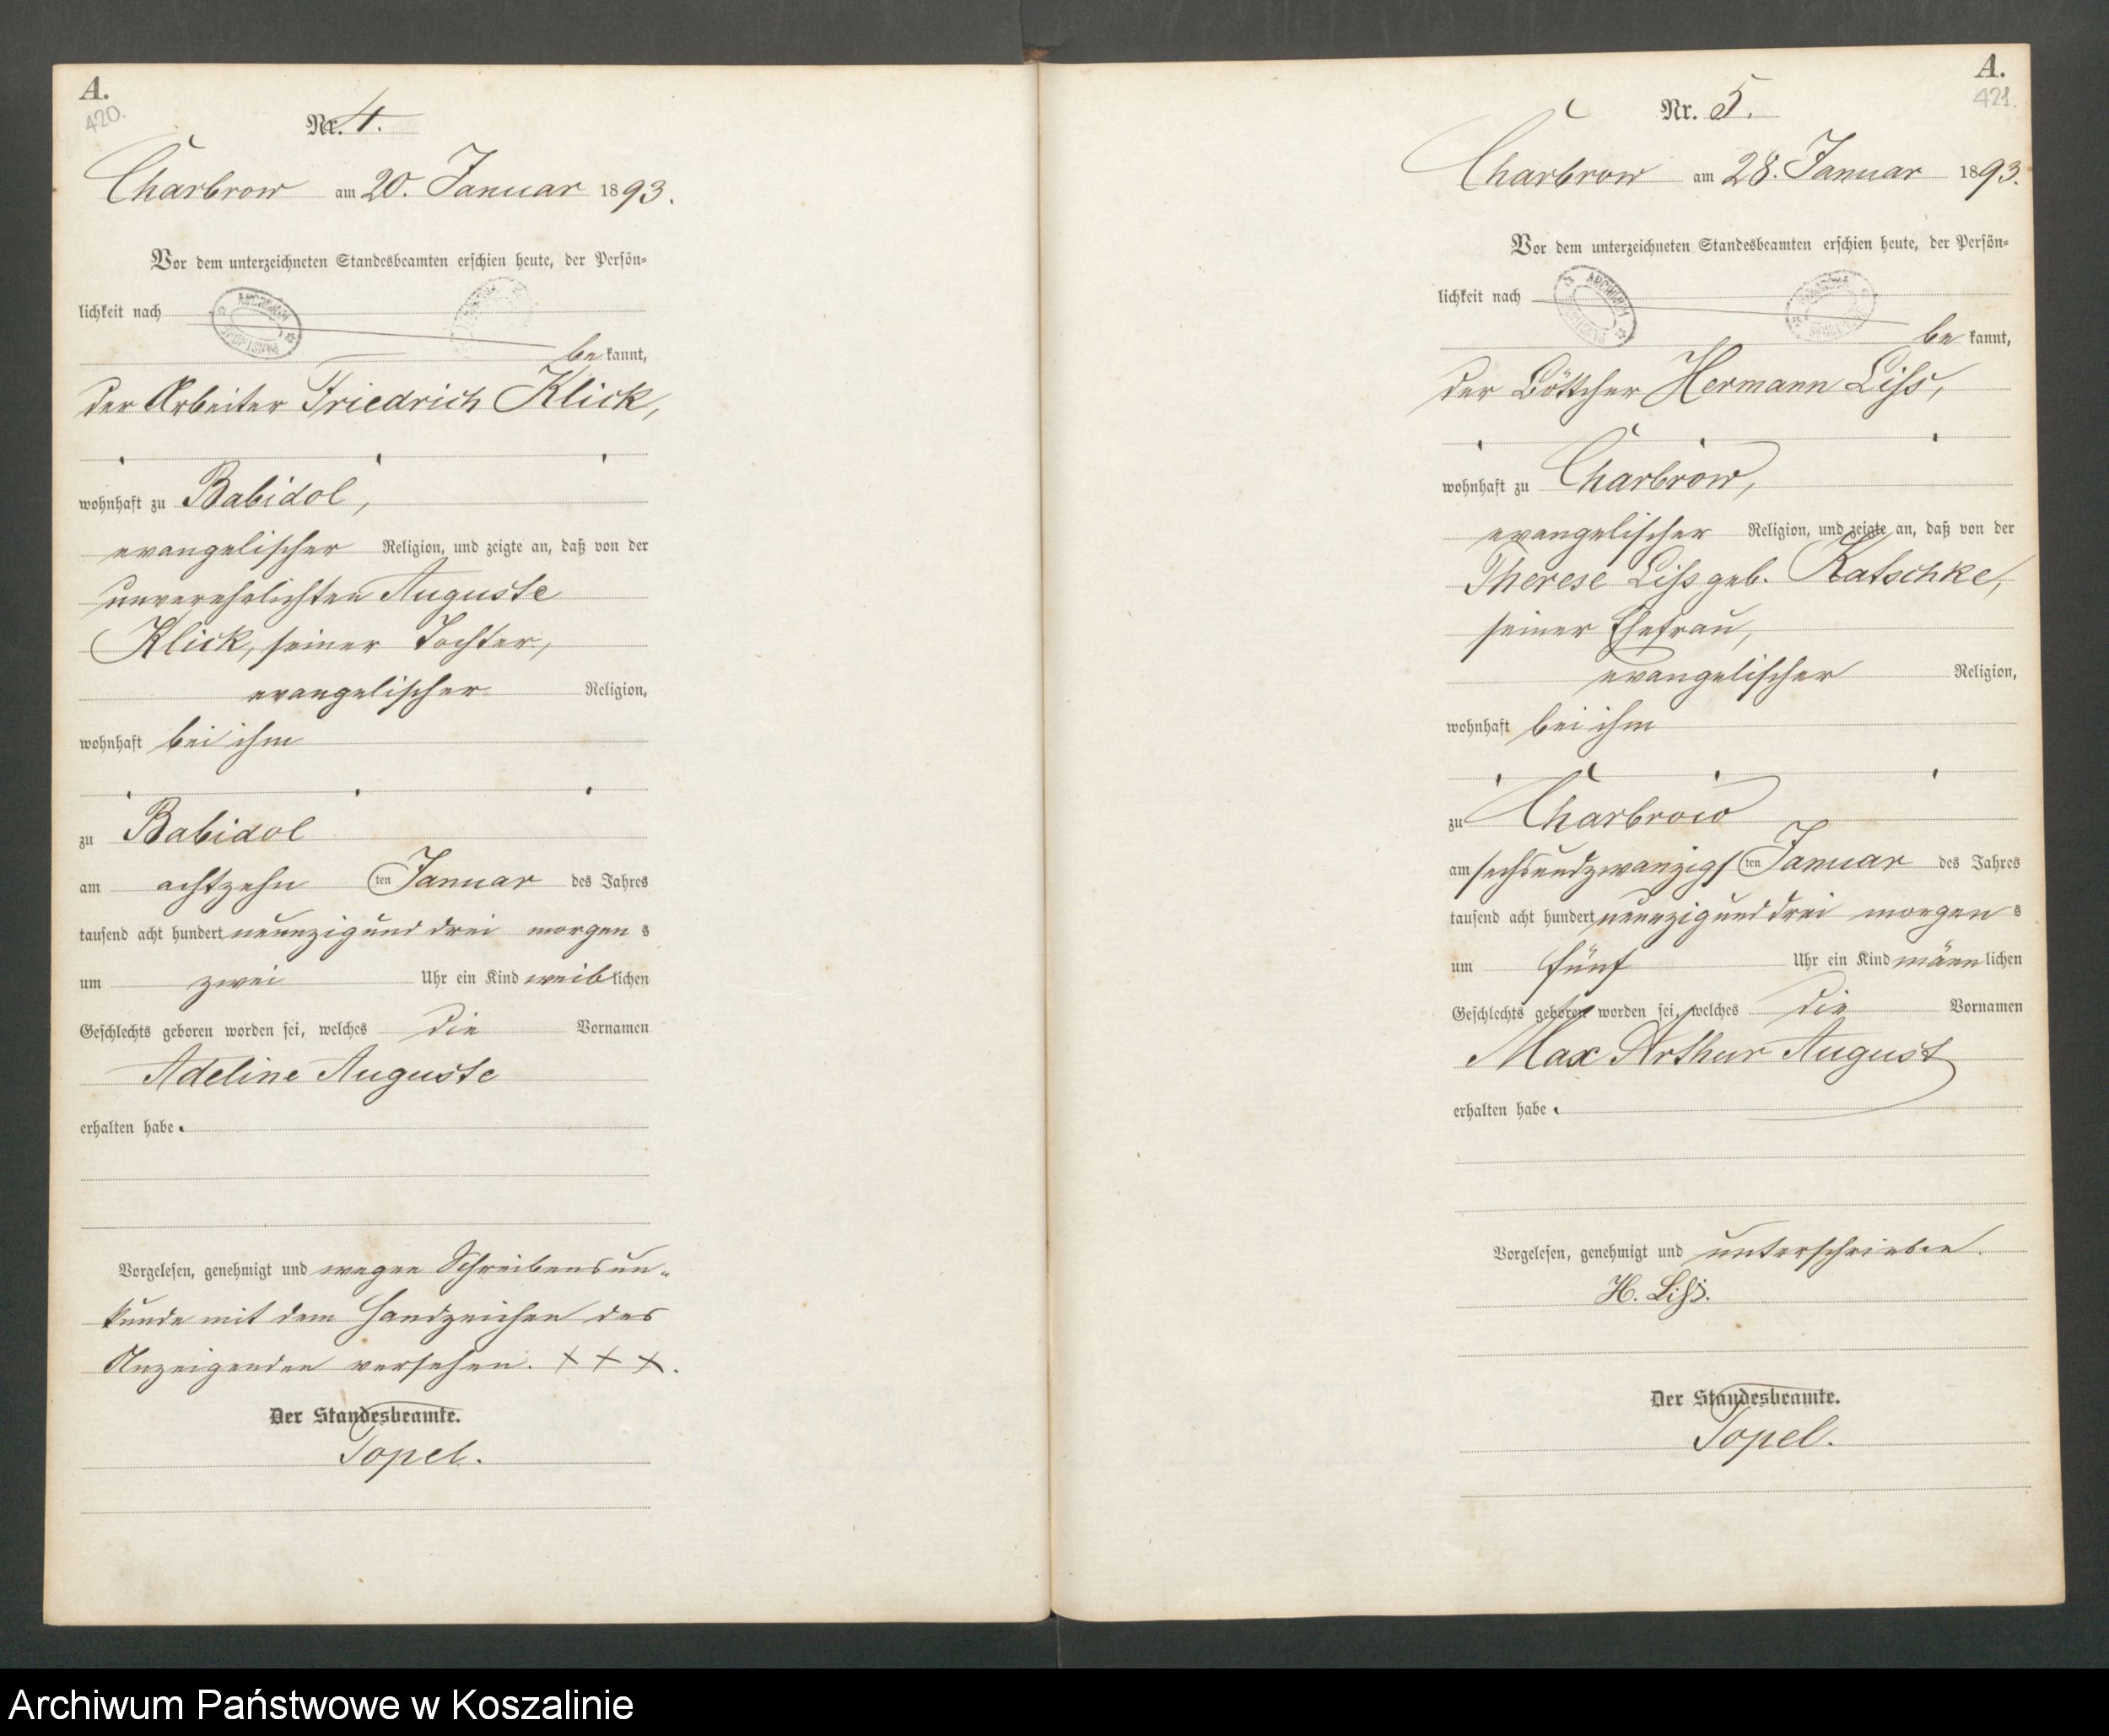 A.
420.
Nr. 4.
Charbrow am 20. Januar 1893.
Vor dem unterzeichneten Standesbeamten erschien heute, der Persön-
lichkeit nach
bekannt,
der Arbeiter Friedrich Klick,
wohnhaft zu Babidol,
evangelischer Religion, und zeigte an, daß von der
unverehelichten Auguste
Klick, seiner Tochter,
evangelischer Religion,
wohnhaft bei ihm
zu Babidol
am achtzehn ten Januar des Jahres
tausend acht hundert neunzig und drei morgens
um zwei Uhr ein Kind weiblichen
Geschlechts geboren worden sei, welches die Vornamen
Adeline Auguste
erhalten habe.
Vorgelesen, genehmigt und wegen Schreibensun-
kunde mit dem Handzeichen des
Anzeigenden versehen. + + +.
Der Standesbeamte.
Topel.
A.
421.
Nr. 5.
Charbrow am 28. Januar 1893.
Vor dem unterzeichneten Standesbeamten erschien heute, der Persön-
lichkeit nach
bekannt,
der Böttcher Hermann Liss,
wohnhaft zu Charbrow,
evangelischer Religion, und zeigte an, daß von der
Therese Liss geb. Katschke,
seiner Ehefrau,
evangelischer Religion,
wohnhaft bei ihm
zu Charbrow
am sechsundzwanzigsten Januar des Jahres
tausend acht hundert neunzig und drei morgens
um fünf Uhr ein Kind männlichen
Geschlechts geboren worden sei, welches die Vornamen
Max Arthur August
erhalten habe.
Vorgelesen, genehmigt und unterschrieben.
H. Liss.
Der Standesbeamte.
Topel.
Archiwum Państwowe w Koszalinie